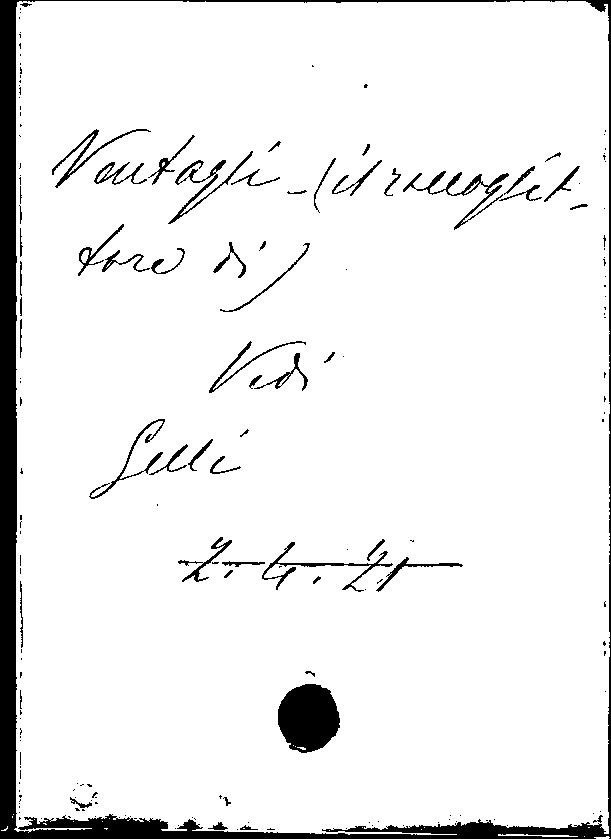 Ventagli - (il raccoglit-
tore di)
Vedi
Gelli
2. 4. 21